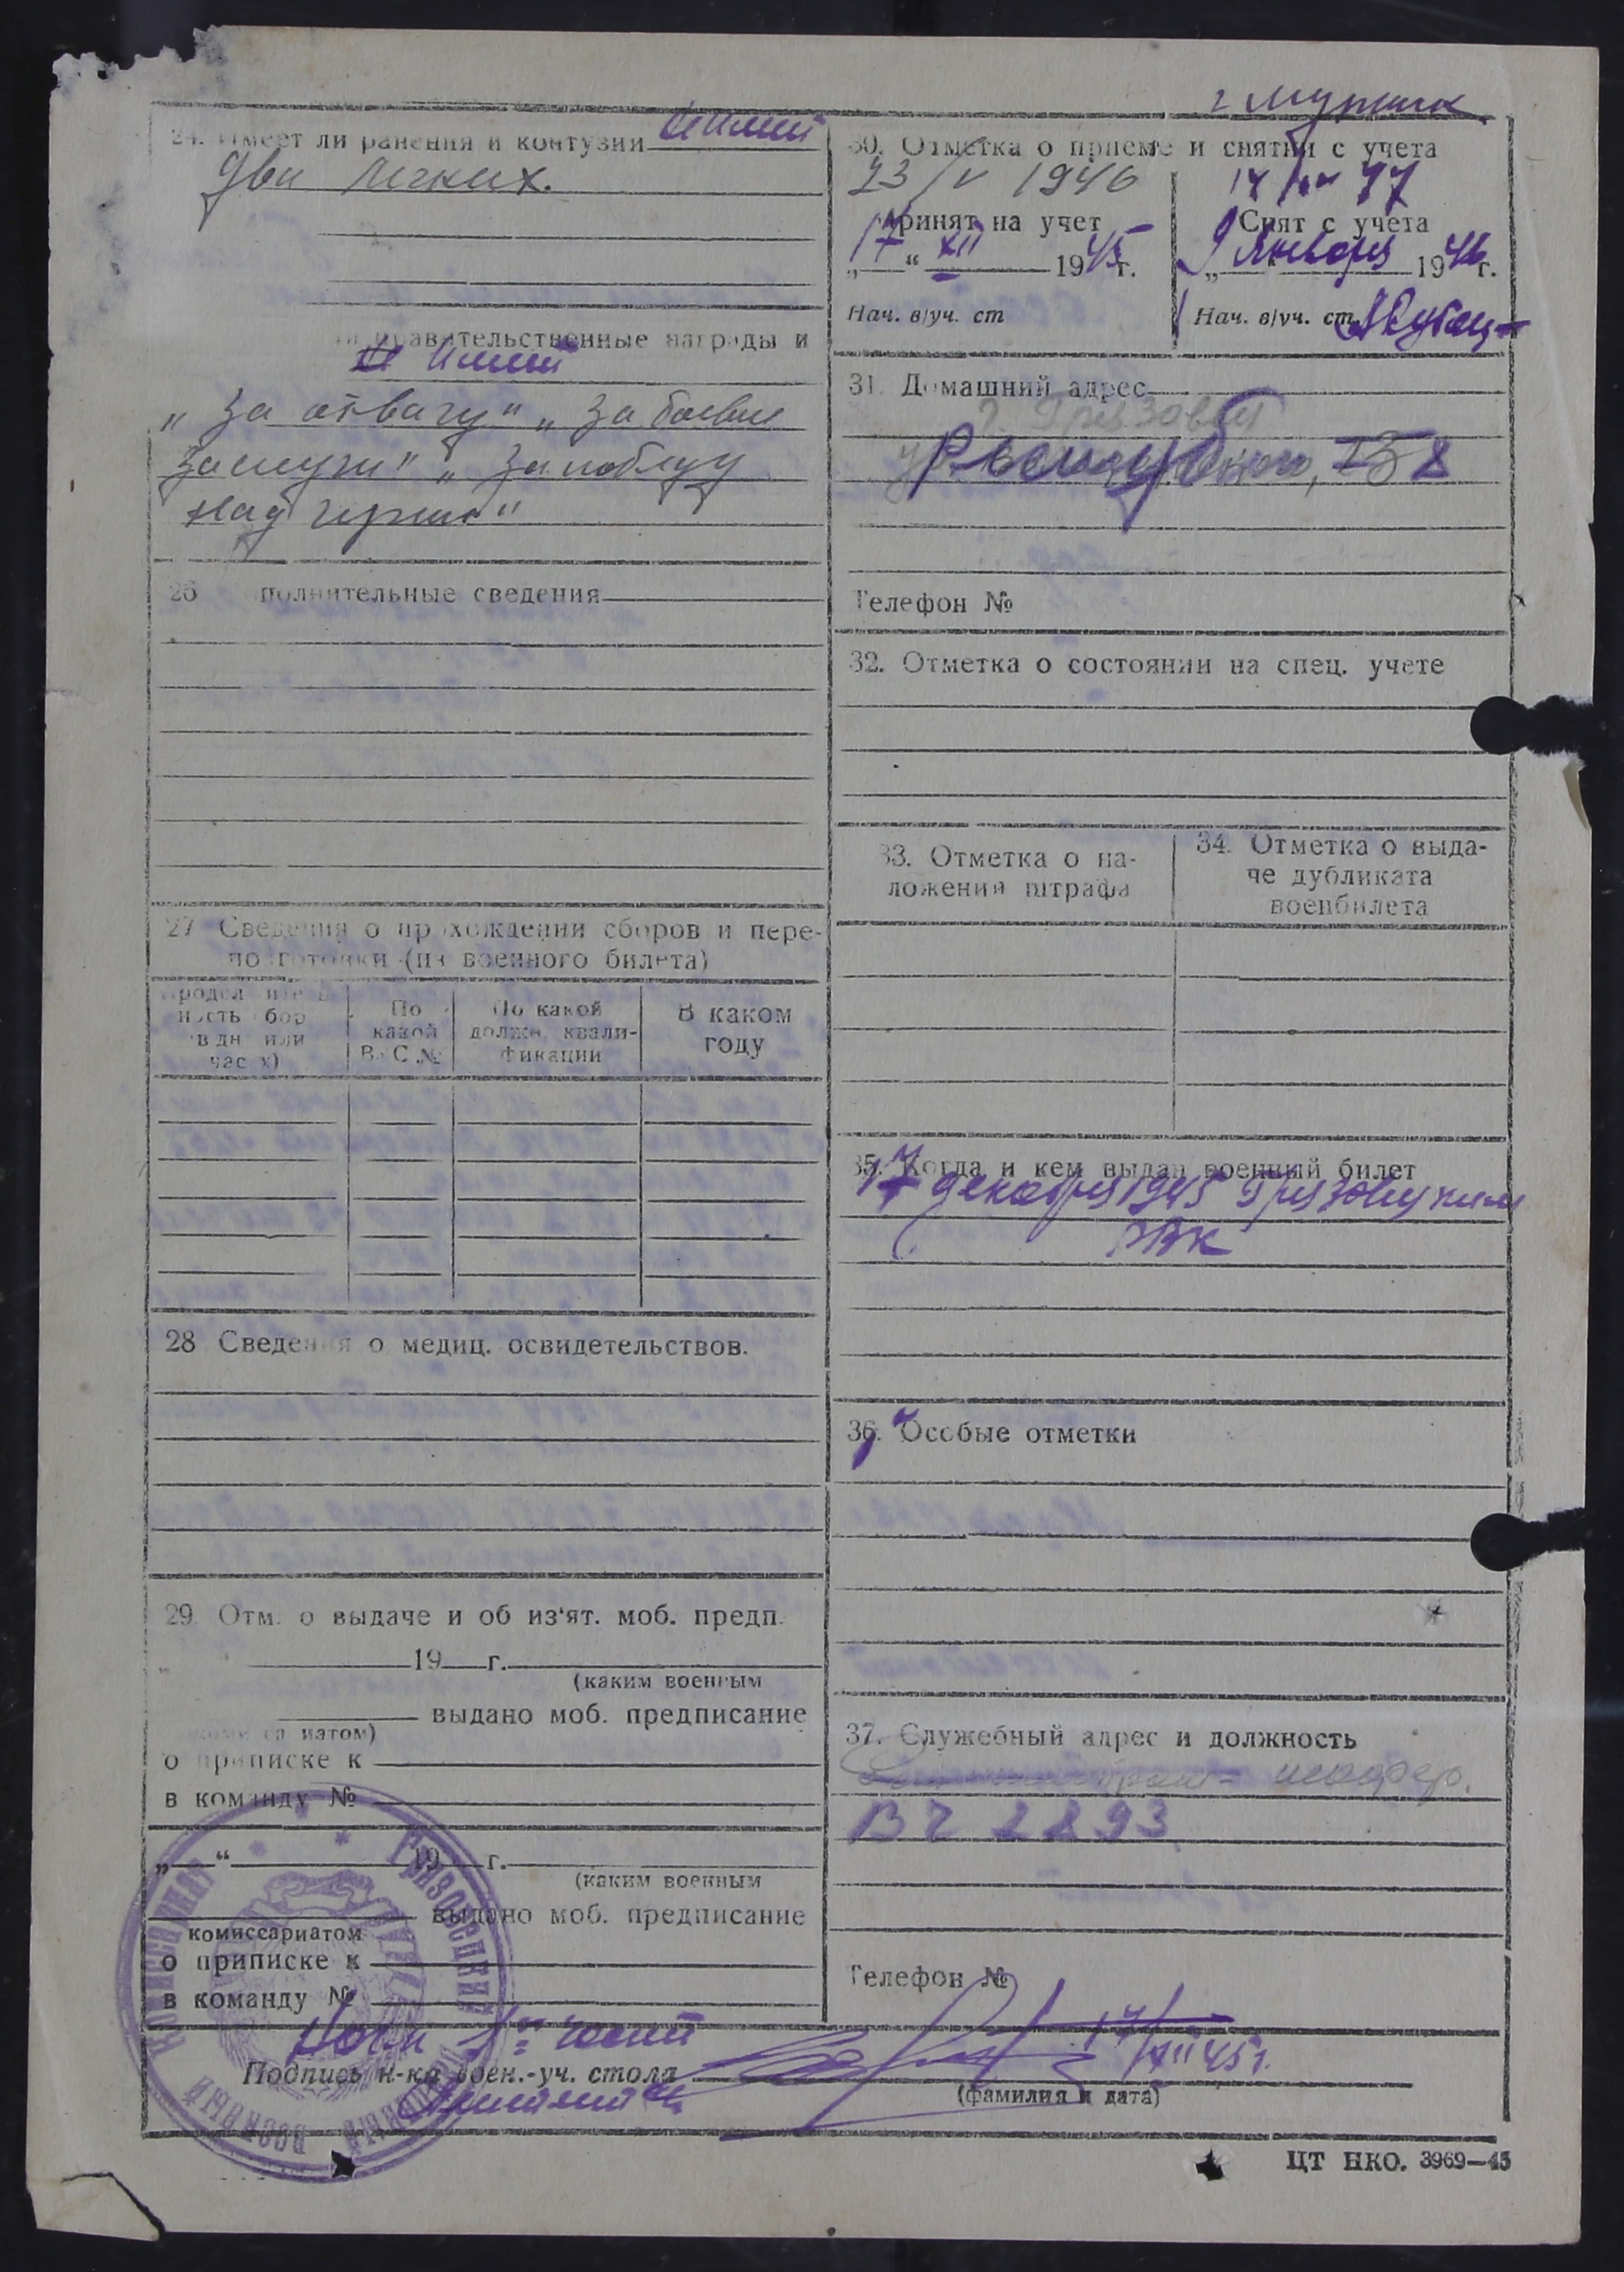 24. Имеет ли ранения и контузии
два легких.
правительственные награды и
„За отвагу" „За боевые
заслуги" „За победу
над герман"
26 полнительные сведения
27 Сведения о прохождении сборов и пере-
подготовки (из военного билета)
По
какой
ВУС №
По какой
должн. квали-
фикации
В каком
году
28 Сведения о медиц. освидетельствов.
29. Отм. о выдаче и об из'ят. моб. предп.
19 г.
(каким военным
выдано моб. предписание
о приписке к
в команду №
„ “ 19 г.
(каким военным
выдано моб. предписание
комиссариатом
о приписке к
в команду №
30. Отметка о приеме и снятии с учета
23/V 1946
Принят на учет
17 XII 1945г.
Нач. в/уч. ст
Снят с учета
9 января 1946г.
Нач. в/уч. ст.
31. Домашний адрес
г. Грязовец
Телефон №
32. Отметка о состоянии на спец. учете
33. Отметка о на-
ложении штрафа
34. Отметка о выда-
че дубликата
военбилета
35. Когда и кем выдан военный билет
17 декабря 1945 Грязовецким
РВК
36. Особые отметки
37. Служебный адрес и должность
шофер.
ВЧ 2893
Телефон №
Нач 1й части
Подпись н-ка воен.-уч. стола
17/XII 45г.
(фамилия и дата)
Грязовецкий
военный
комиссариат
ЦТ НКО. 3969—45